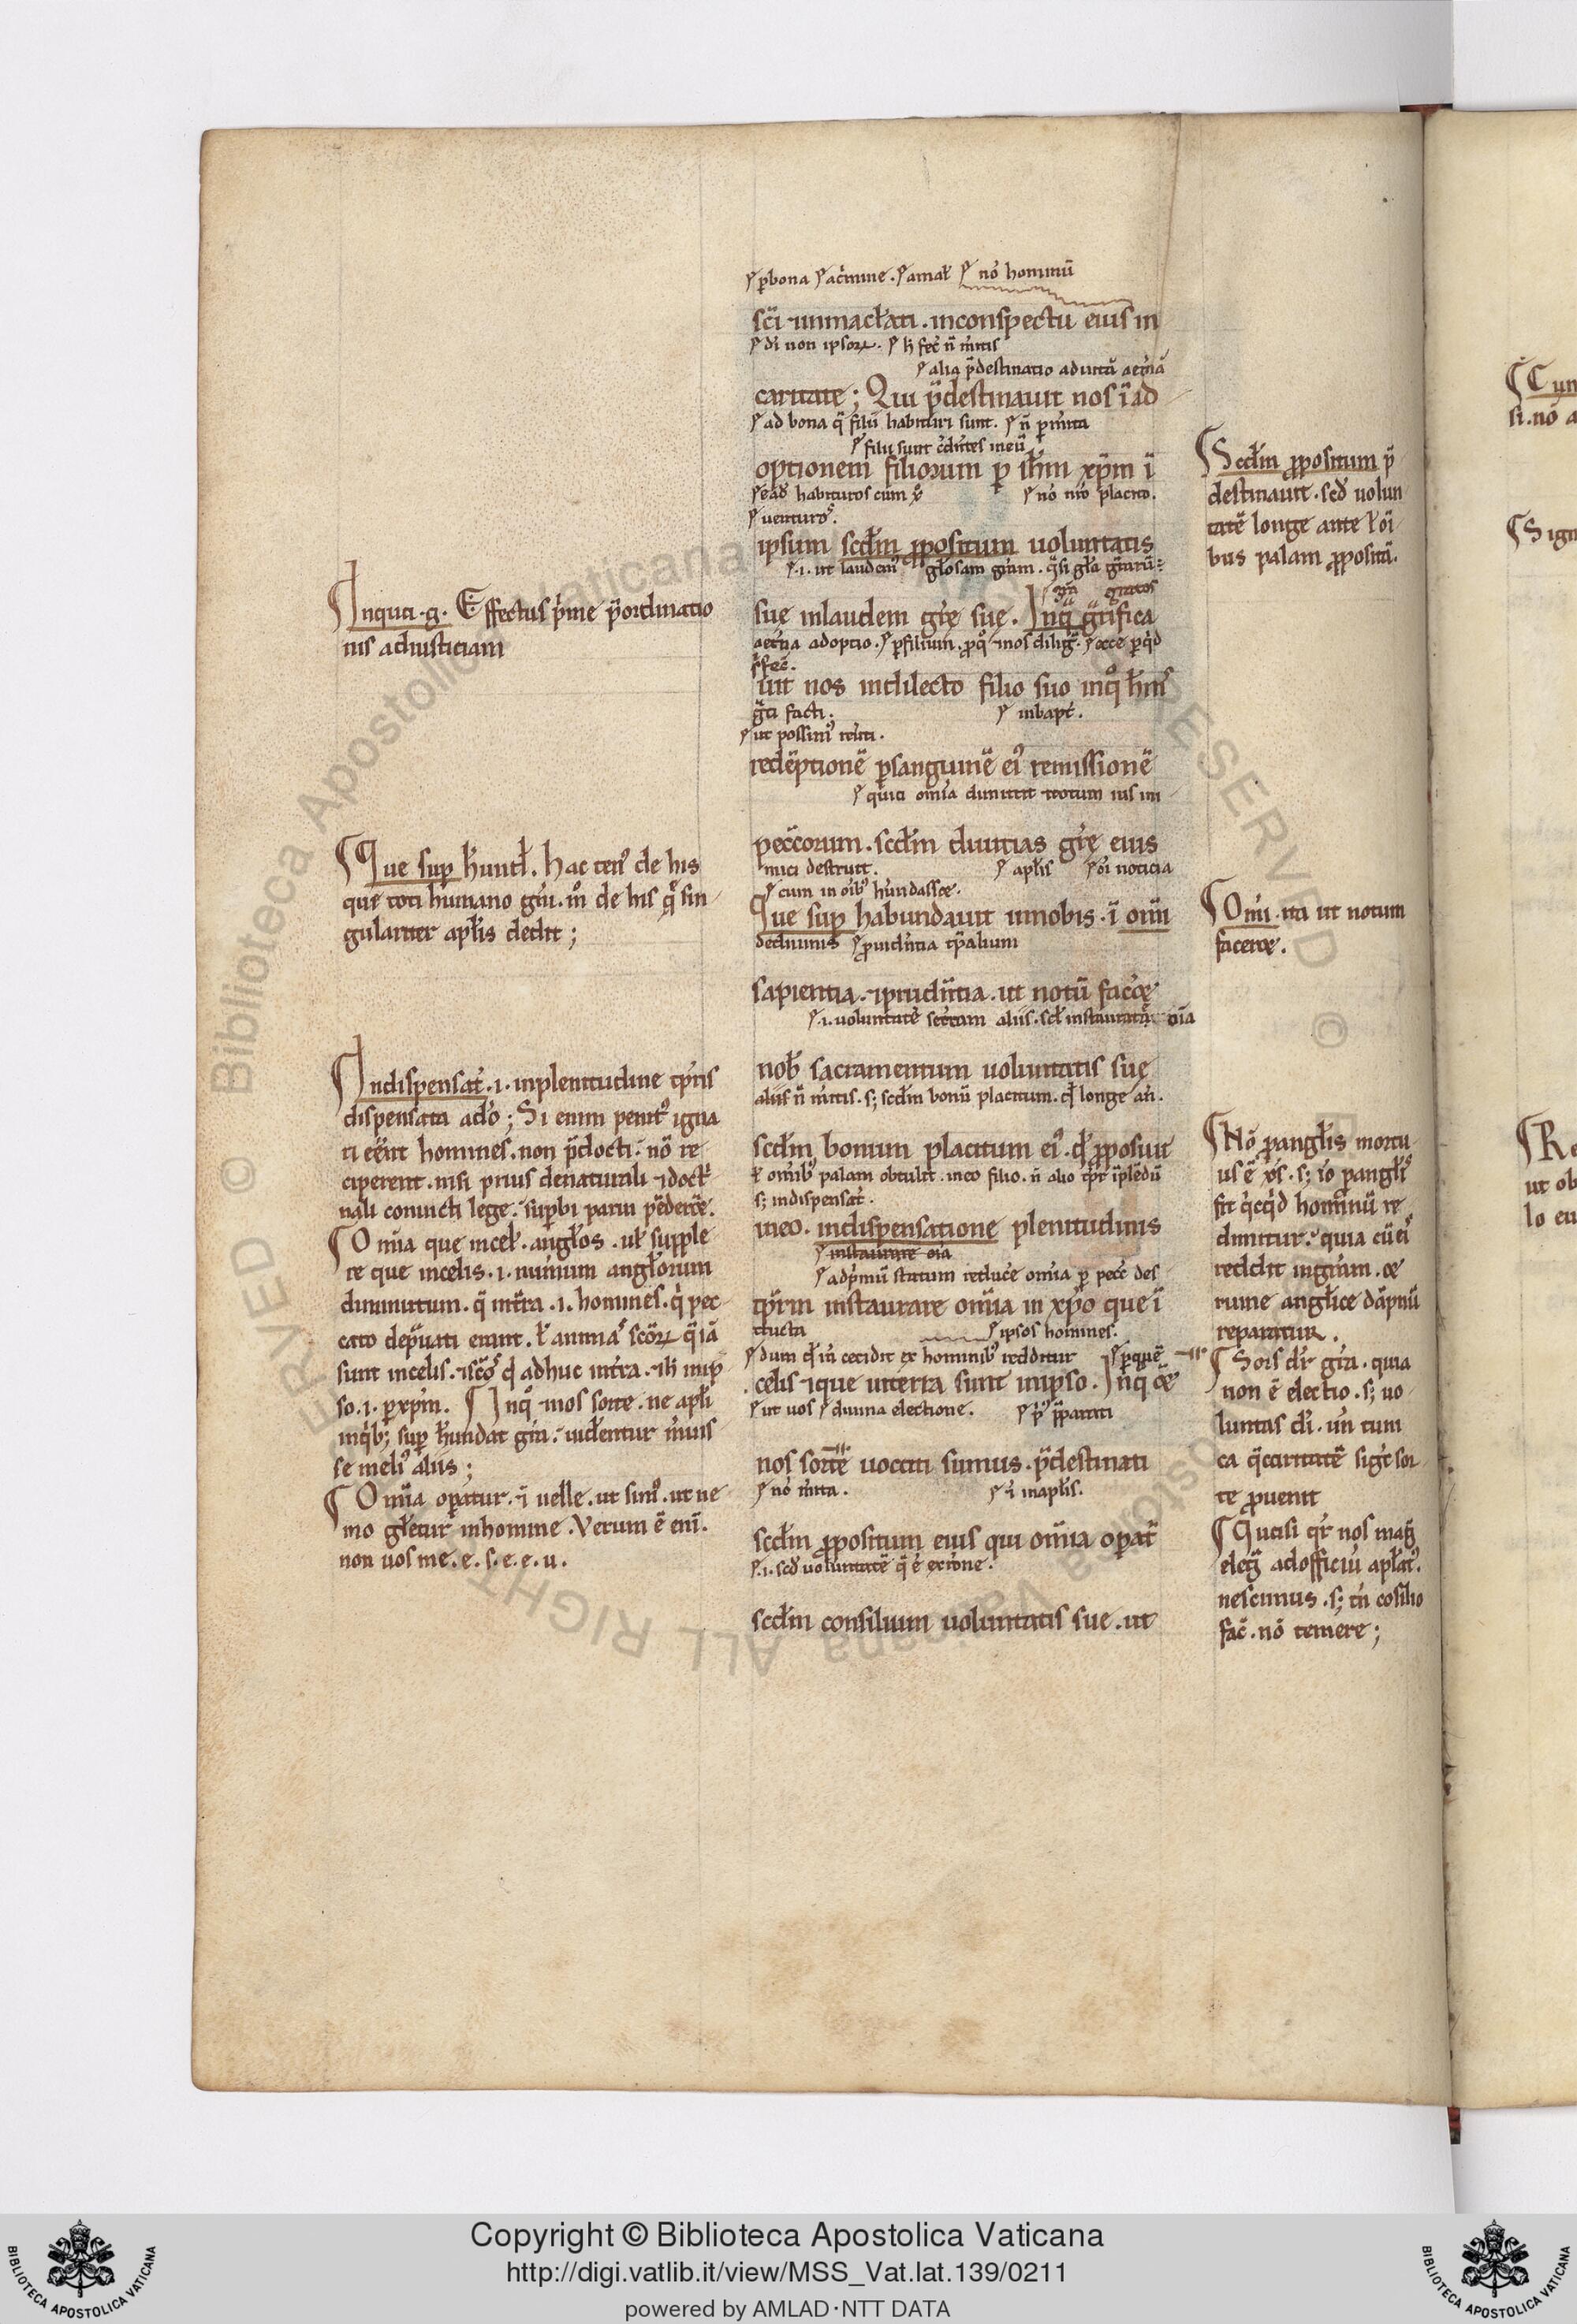 p̄bona a crimine. amat̄ nō hominū
sc̄i ⁊ inmacl̄ati. in conspectu eius in
di non ipsoꝝ. h̄ fec̄ n̄ m̄itis
alia p̄destinatio ad uitā aet̄nā
caritate; Qui p̄destinauit nos ī ad
ad bona q̄ filii habituri sunt. n̄ p̄ m̄ita
filii sunt c̄dn̄tes in eū
optionem filiorum ꝑ ih̄m xp̄m ī
nō nr̄o placito.
uenturos.
ipsum scd̄m ꝓpositum uoluntatis
.i. ut laudem gl̄osam gr̄am. q̄si gl̄a
sue in laudem gr̄ę suę. In q̄ gr̄ifica
aet̄na adoptio. ꝑ filium.
uit nos in dilecto filio suo in q̊ hēm᷒
gr̄ti facti. in bapt̄.
ut possim᷒
redēptionē ꝑ sanguinē ei᷒ remissionē
quia om̄ia dimittit
pecc̄orum. scd̄m diuitias gr̄ę eius
mici destruit. apl̄is noticia
cum in oīb᷒ hūndasset.
Que suꝑ habundauit in nobis. ī om̄i
de diuinis ꝓuidn̄tia tp̄alium
sapientia. ⁊ prudn̄tia. ut notū fac̄et
.i. uoluntatē aliis.
nob̄ sacramentum uoluntatis suę
aliis n̄ m̄itis. s; scd̄m bonū placitum. qd̄ longe an̄.
scd̄m bonum placitum ei᷒. qd̄ ꝓposuit
om̄ib᷒ palam obtulit. in eo filio. n̄ alio tp̄r īplēdū
s; in dispensat̄.
in eo. in dispensatione plenitudinis
instaurare oīa
ad p̄mū statum reduc̄e om̄ia
tp̄rm instaurare om̄ia in xp̄o que ī
ipsos homines.
dum qd̄ cecidit ex hominib᷒ redditur ꝑ quē
celis ⁊ que in terra sunt in ipso. In q̊ et̄
ut uos diuina electione.
nos sorte uocati sumus. p̄destinati
nō m̄ita. ⁊ in apl̄is.
scd̄m ꝓpositum eius qui om̄ia opat̄
.i. scd̄ uoluntatē q̄ ē
scd̄m consilium uoluntatis sue. ut
In qua. g. Effectus p̄me p̄ordinatio
nis ad iusticiam
Que suꝑ hūnd̄. Hac ten᷒ de his
que toti humano gn̄i. m̊ de his q̄ sin
gulariter apl̄is dedit;
In dispensat̄. i. in plenitudine tp̄ris
dispensata a dō; Si enim penit᷒ igna
ri eēnt homines. non p̄docti. nō re
ciperent. nisi prius de naturali ⁊ doct̄
nali conuicti lege. suꝑbi
Om̄ia que in cel̄. angl̄os. ul̄ supple
re que in celis. i. num̄um angl̄orum
diminutum. q̄ in t̄ra. i. homines. q̄ pec
cato dep̄uati erant. ul̄ animas sc̄oꝝ q̄ iā
sunt in celis. ⁊ sc̄os qd̄ adhuc in t̄ra. ⁊ h̄ in ip̄
so. i. ꝑ xp̄m. In q̊ ⁊ nos sorte. ne apl̄i
in q̄b; suꝑ hūndat gr̄a. uid̄entur m̄itis
se meli᷒ aliis;
Om̄ia operatur. ⁊ uelle. ut sim᷒. ut ne
mo gl̄etur in homine. Verum ē eni᷒.
non uos me. e. s. e. e. u.
Scd̄m ꝓpositum p̄
destinauit. scd̄ uolun
tatē longe ante
bus palam ꝓpositā.
Om̄i. ita ut notum
faceret.
Nō ꝓ angl̄is mortu
us ē xp̄s. s; iō ꝓ angl̄is
fit q̄cq̄d hominū re
dimitur. quia cū ei᷒
reddit in gr̄am. et
ruine angl̄ice dāpnū
reparatur.
Sors dr̄ gr̄a. quia
non ē electio. s; uo
luntas di. un̄ tuni
ca q̄ caritatē siḡt sor
te ꝓuenit
Quasi qr̄ nos maḡ
eleḡ ad officiū apl̄at᷒.
nescimus. s; tn̄ cōsilio
fac̄. nō temere;
Cum
si. nō a
Sign
Re
ut ob
lo eu
© Biblioteca Apostolica Vaticana ALL RIGHTS RESERVED
Copyright © Biblioteca Apostolica Vaticana
http://digi.vatlib.it/view/MSS_Vat.lat.139/0211
powered by AMLAD·NTT DATA
BIBLIOTECA APOSTOLICA VATICANA
BIBLIOTECA APOSTOLICA VATICANA